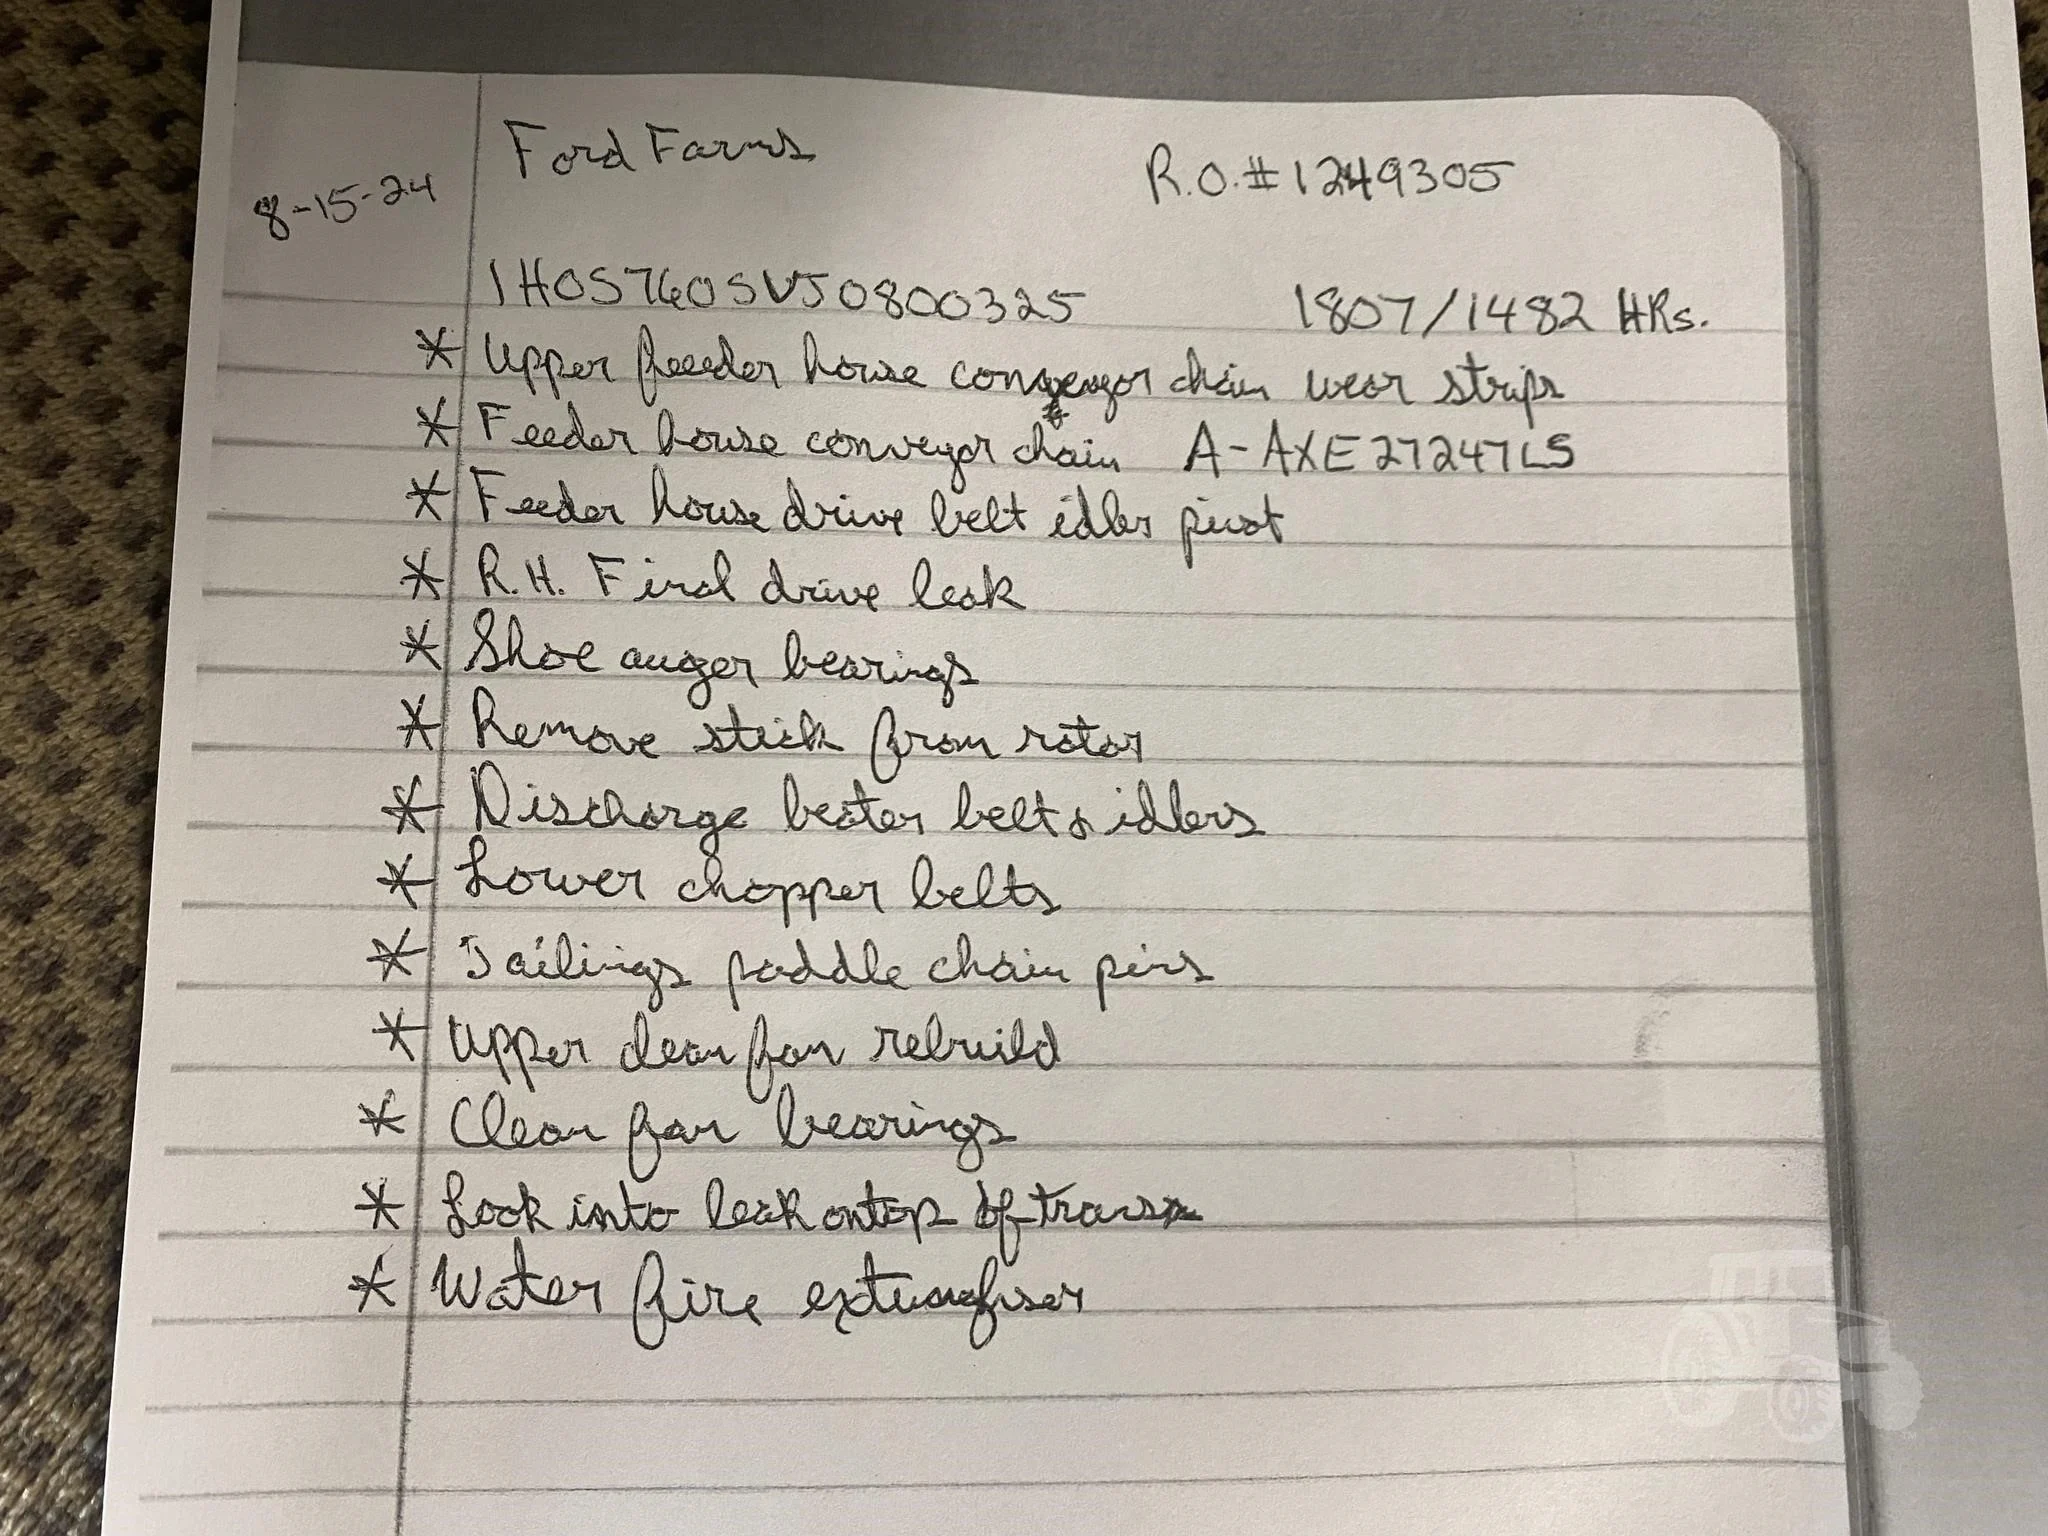 Ford Farms
R.O.# 1249305
8-15-24
1H0S760SVJ0800325 1807/1482 HRs.
* Upper feeeder house conveyor chain wear strips
* Feeder house conveyor chain A-AXE27247LS
* Feeder house drive belt idler pivot
* R.H. Final drive leak
* Shoe auger bearings
* Remove stick from rotor
* Discharge beater belt & idlers
* Lower chopper belts
* Tailings paddle chain pins
* Upper clean fan rebuild
* Clean fan bearings
* Look into leak on top of trans
* Water fire extungiser